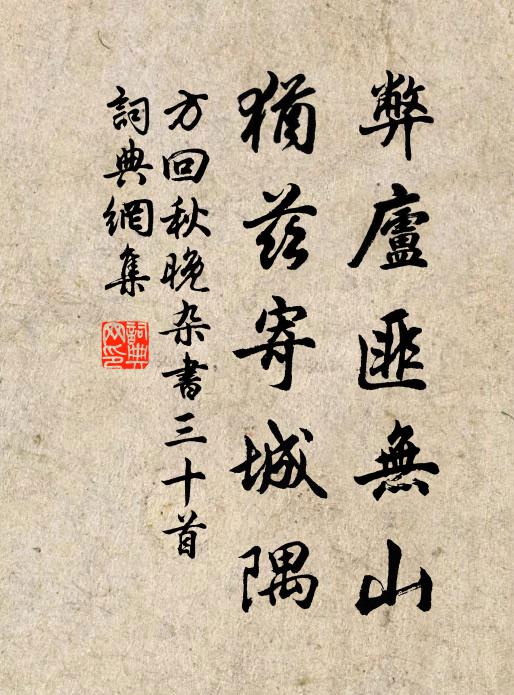 弊廬匪無山
猶茲寄城隅
方回秋晚杂書三十首
詞典網集
詞典網印